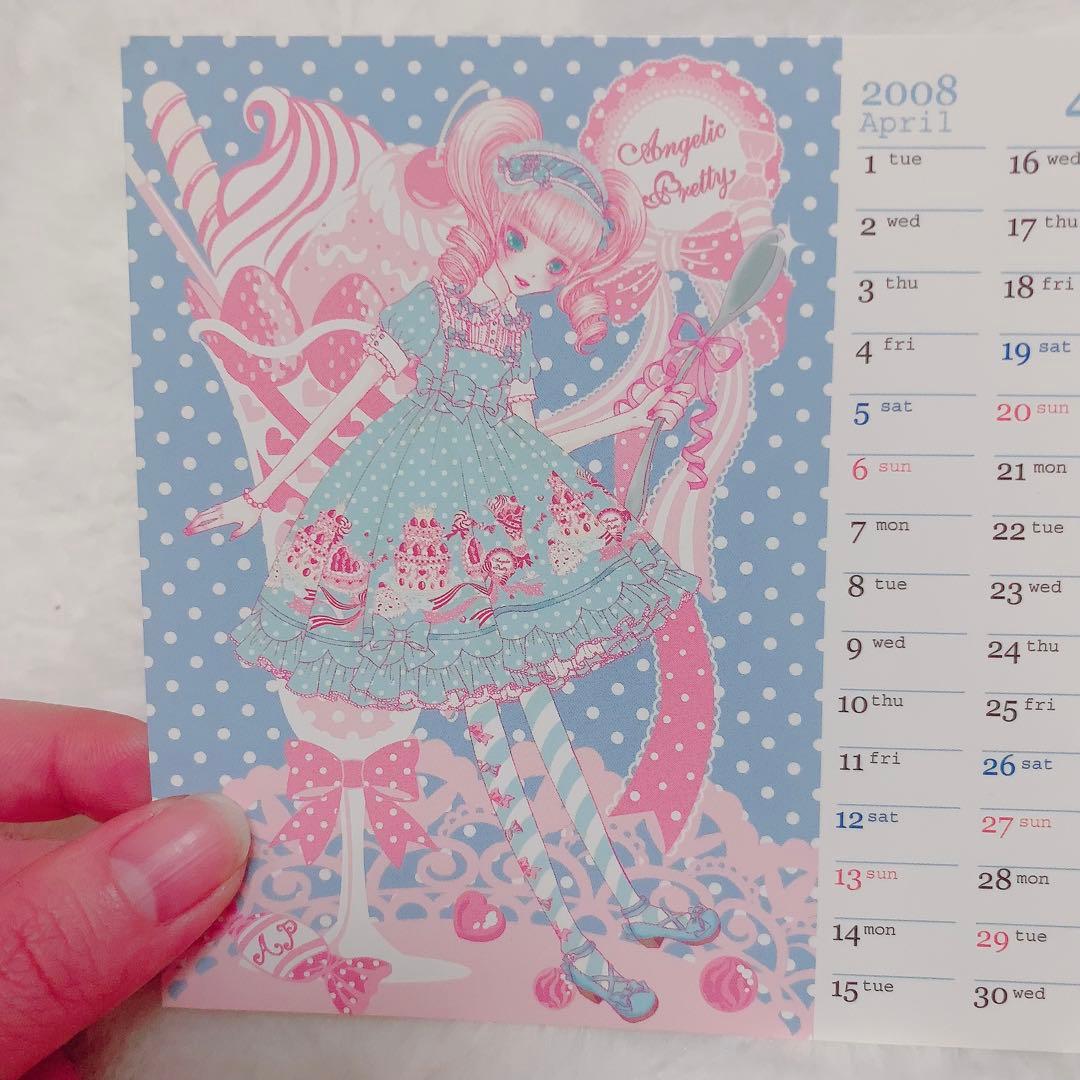 Angelic
Pretty
AP
2008
April
1 tue
2 wed
3 thu
4 fri
5 sat
6 sun
7 mon
8 tue
9 wed
10 thu
11 fri
12 sat
13 sun
14 mon
15 tue
16 wed
17 thu
18 fri
19 sat
20 sun
21 mon
22 tue
23 wed
24 thu
25 fri
26 sat
27 sun
28 mon
29 tue
30 wed